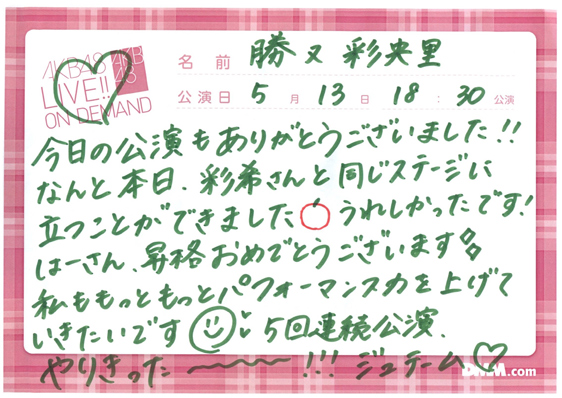 AKB48
LIVE!!
ON DEMAND
AKB
48
名前 勝又 彩央里
公演日 5月13日 18:30公演
今日の公演もありがとうございました!!
なんと本日、彩希さんと同じステージに
立つことができました うれしかったです!
はーさん、昇格おめでとうございます
私ももっともっとパフォーマンス力を上げて
いきたいです 5回連続公演、
やりきった〜!!! ジュテーム♡
DMM.com